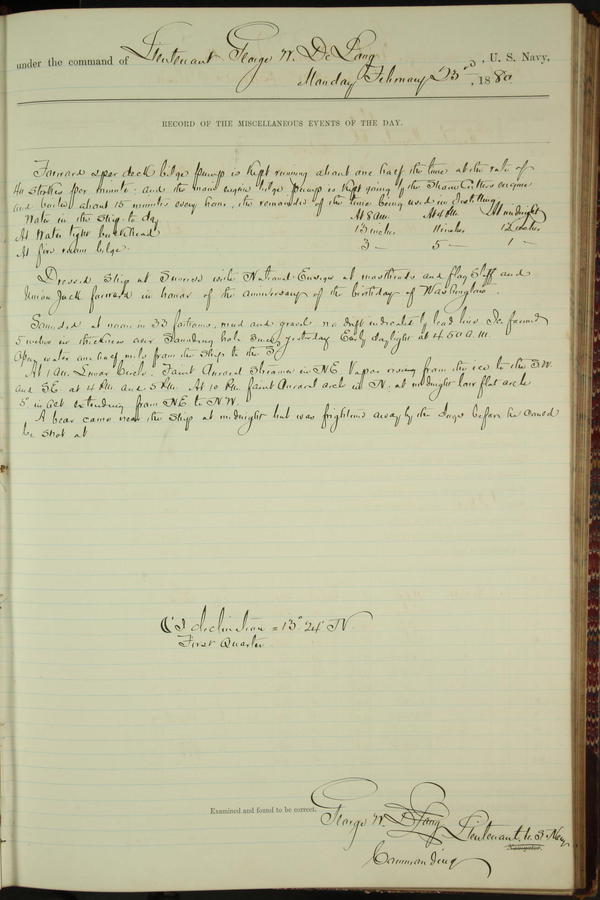 under the command of Lieutenant George W. De Long, U. S. Navy,
Monday February 23rd, 1880
RECORD OF THE MISCELLANEOUS EVENTS OF THE DAY.
Forward spar deck bilge pump is kept running about one half the time at the rate of
40 strokes per minute: and the main engine bilge pump is kept going by the Steam Cutters engine
and boiler about 15 minutes every hour, the remainder of the time being used in distilling.
Water in the ship to day At 8 am. At 4 PM. At midnight
At Water tight bulkhead 13 inches 11 inches 12 inches
At fire room bilge. 3 — 5 — 1 —
Dressed ship at Sunrise with National Ensign at mastheads and flag staff and
Union Jack forward in honor of the anniversary of the birthday of Washington.
Sounded at noon in 33 fathoms, mud and gravel no drift indicated by lead line. Ice formed
5 inches in thickness over Sounding hole since yesterday. Early daylight at 4.50 A.M.
Open water one half mile from the ship to the Sd
At 1 AM. Lunar Circle. Faint Auroral Streamer in NE. Vapor rising from the ice to the SW.
and SE. at 4 PM and 5 PM. At 10 PM. faint Auroral arch in N. at midnight low flat arch
5° in alt extending from NE to NW.
A bear came near the ship at midnight but was frightened away by the dogs before he could
be shot at
☾'s declination = 13° 24' N
First Quarter
Examined and found to be correct.
George W. De Long Lieutenant U. S. Navy
Navigator.
Commanding